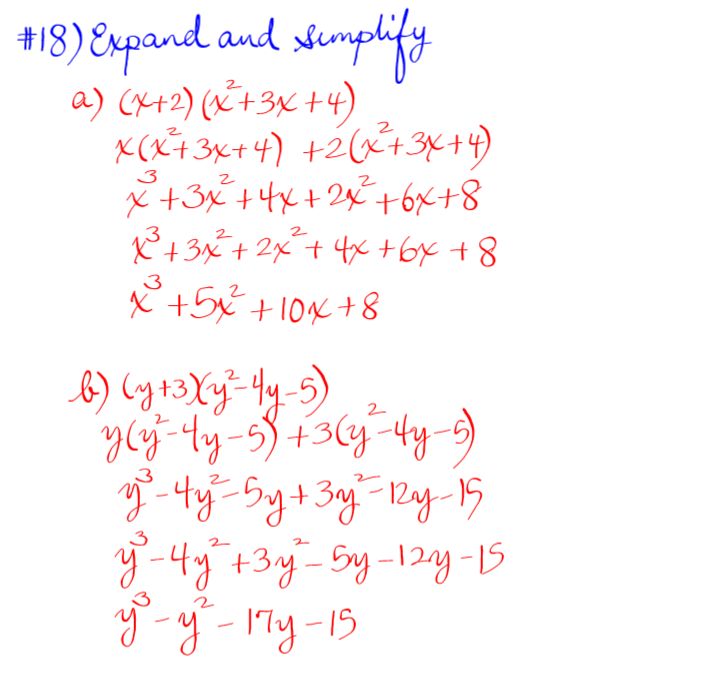 #18) Expand and simplify
a) (x+2)(x²+3x+4)
x(x²+3x+4) +2(x²+3x+4)
x³+3x²+4x+2x²+6x+8
x³+3x²+2x²+4x+6x+8
x³+5x²+10x+8
b) (y+3)(y²-4y-5)
y(y²-4y-5)+3(y²-4y-5)
y³-4y²-5y+3y²-12y-15
y³-4y²+3y²-5y-12y-15
y³-y²-17y-15